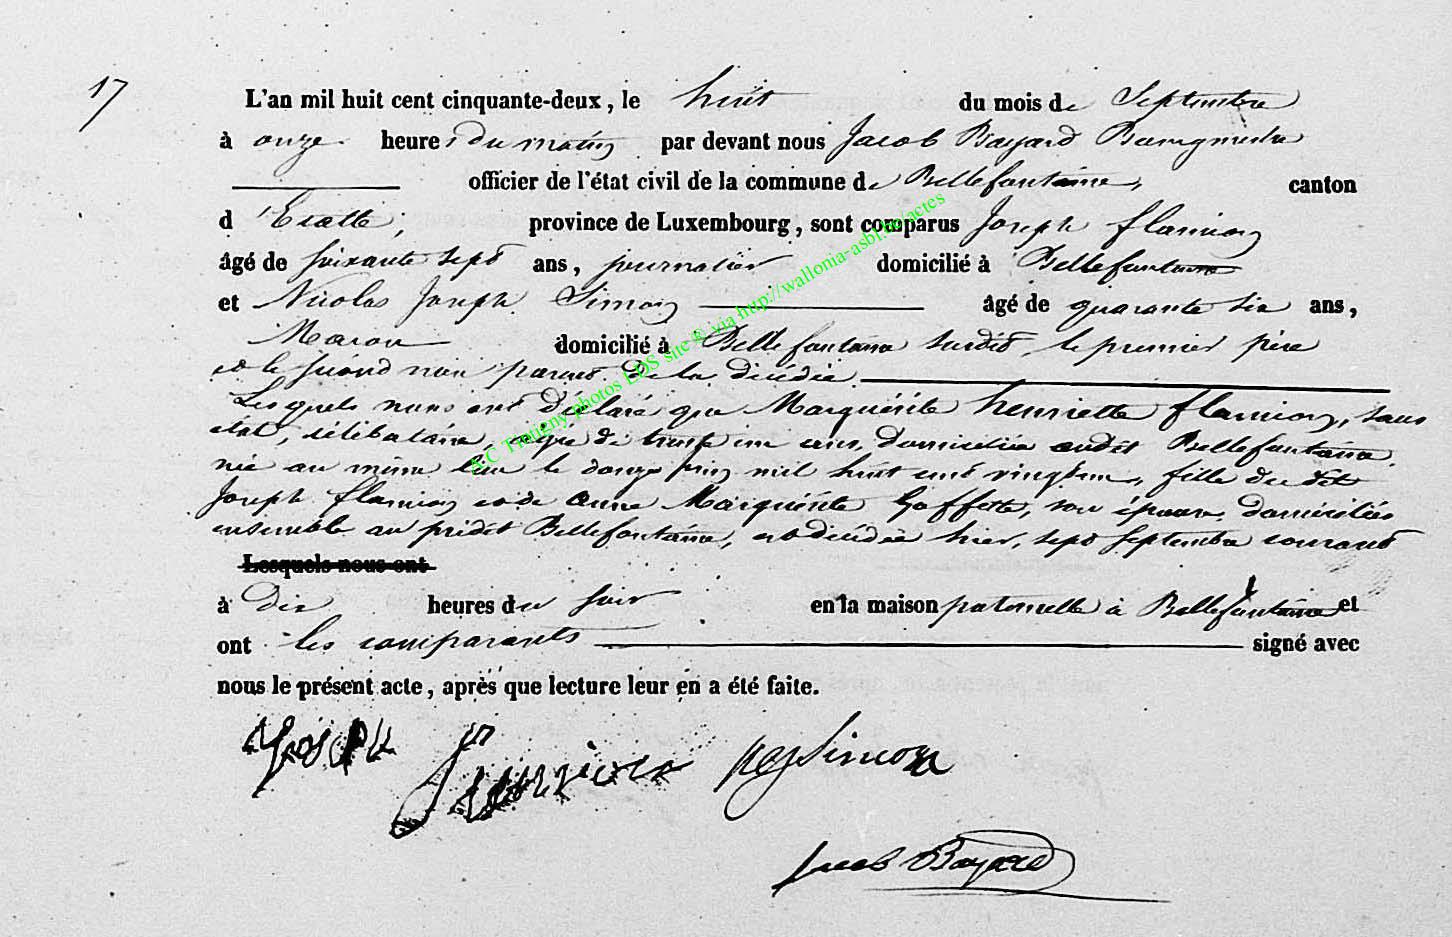 17
L'an mil huit cent cinquante-deux, le huit du mois de Septembre
à onze heures du matin par devant nous Jacob Bayard Bourgmestre
officier de l'état civil de la commune de Bellefontaine, canton
d'Etalle, province de Luxembourg, sont comparus Joseph flamion
âgé de soixante sept ans, journalier domicilié à Bellefontaine
et Nicolas Joseph Simon âgé de quarante six ans,
domicilié à Bellefontaine susdit, le premier père
et le second non parent de la décédée
Lesquels nous ont déclaré que Marguérite henriette flamion, sans
état, célibataire, agée de trente un ans, domiciliée audit Bellefontaine,
née au même lieu le douze juin mil huit cent vingt un, fille du dit
Joseph flamion et de anne Marguérite Goffette, son épouse, domiciliés
ensemble au prédit Bellefontaine, est décédée hier, sept Septembre courant
Lesquels nous ont
à dix heures du soir en la maison paternelle à Bellefontaine et
ont les comparants signé avec
nous le présent acte, après que lecture leur en a été faite.
Joseph flamion NJ Simon
Jacob Bayard
A.C Tintigny photos LDS site © via http://wallonia-asbl.be/actes